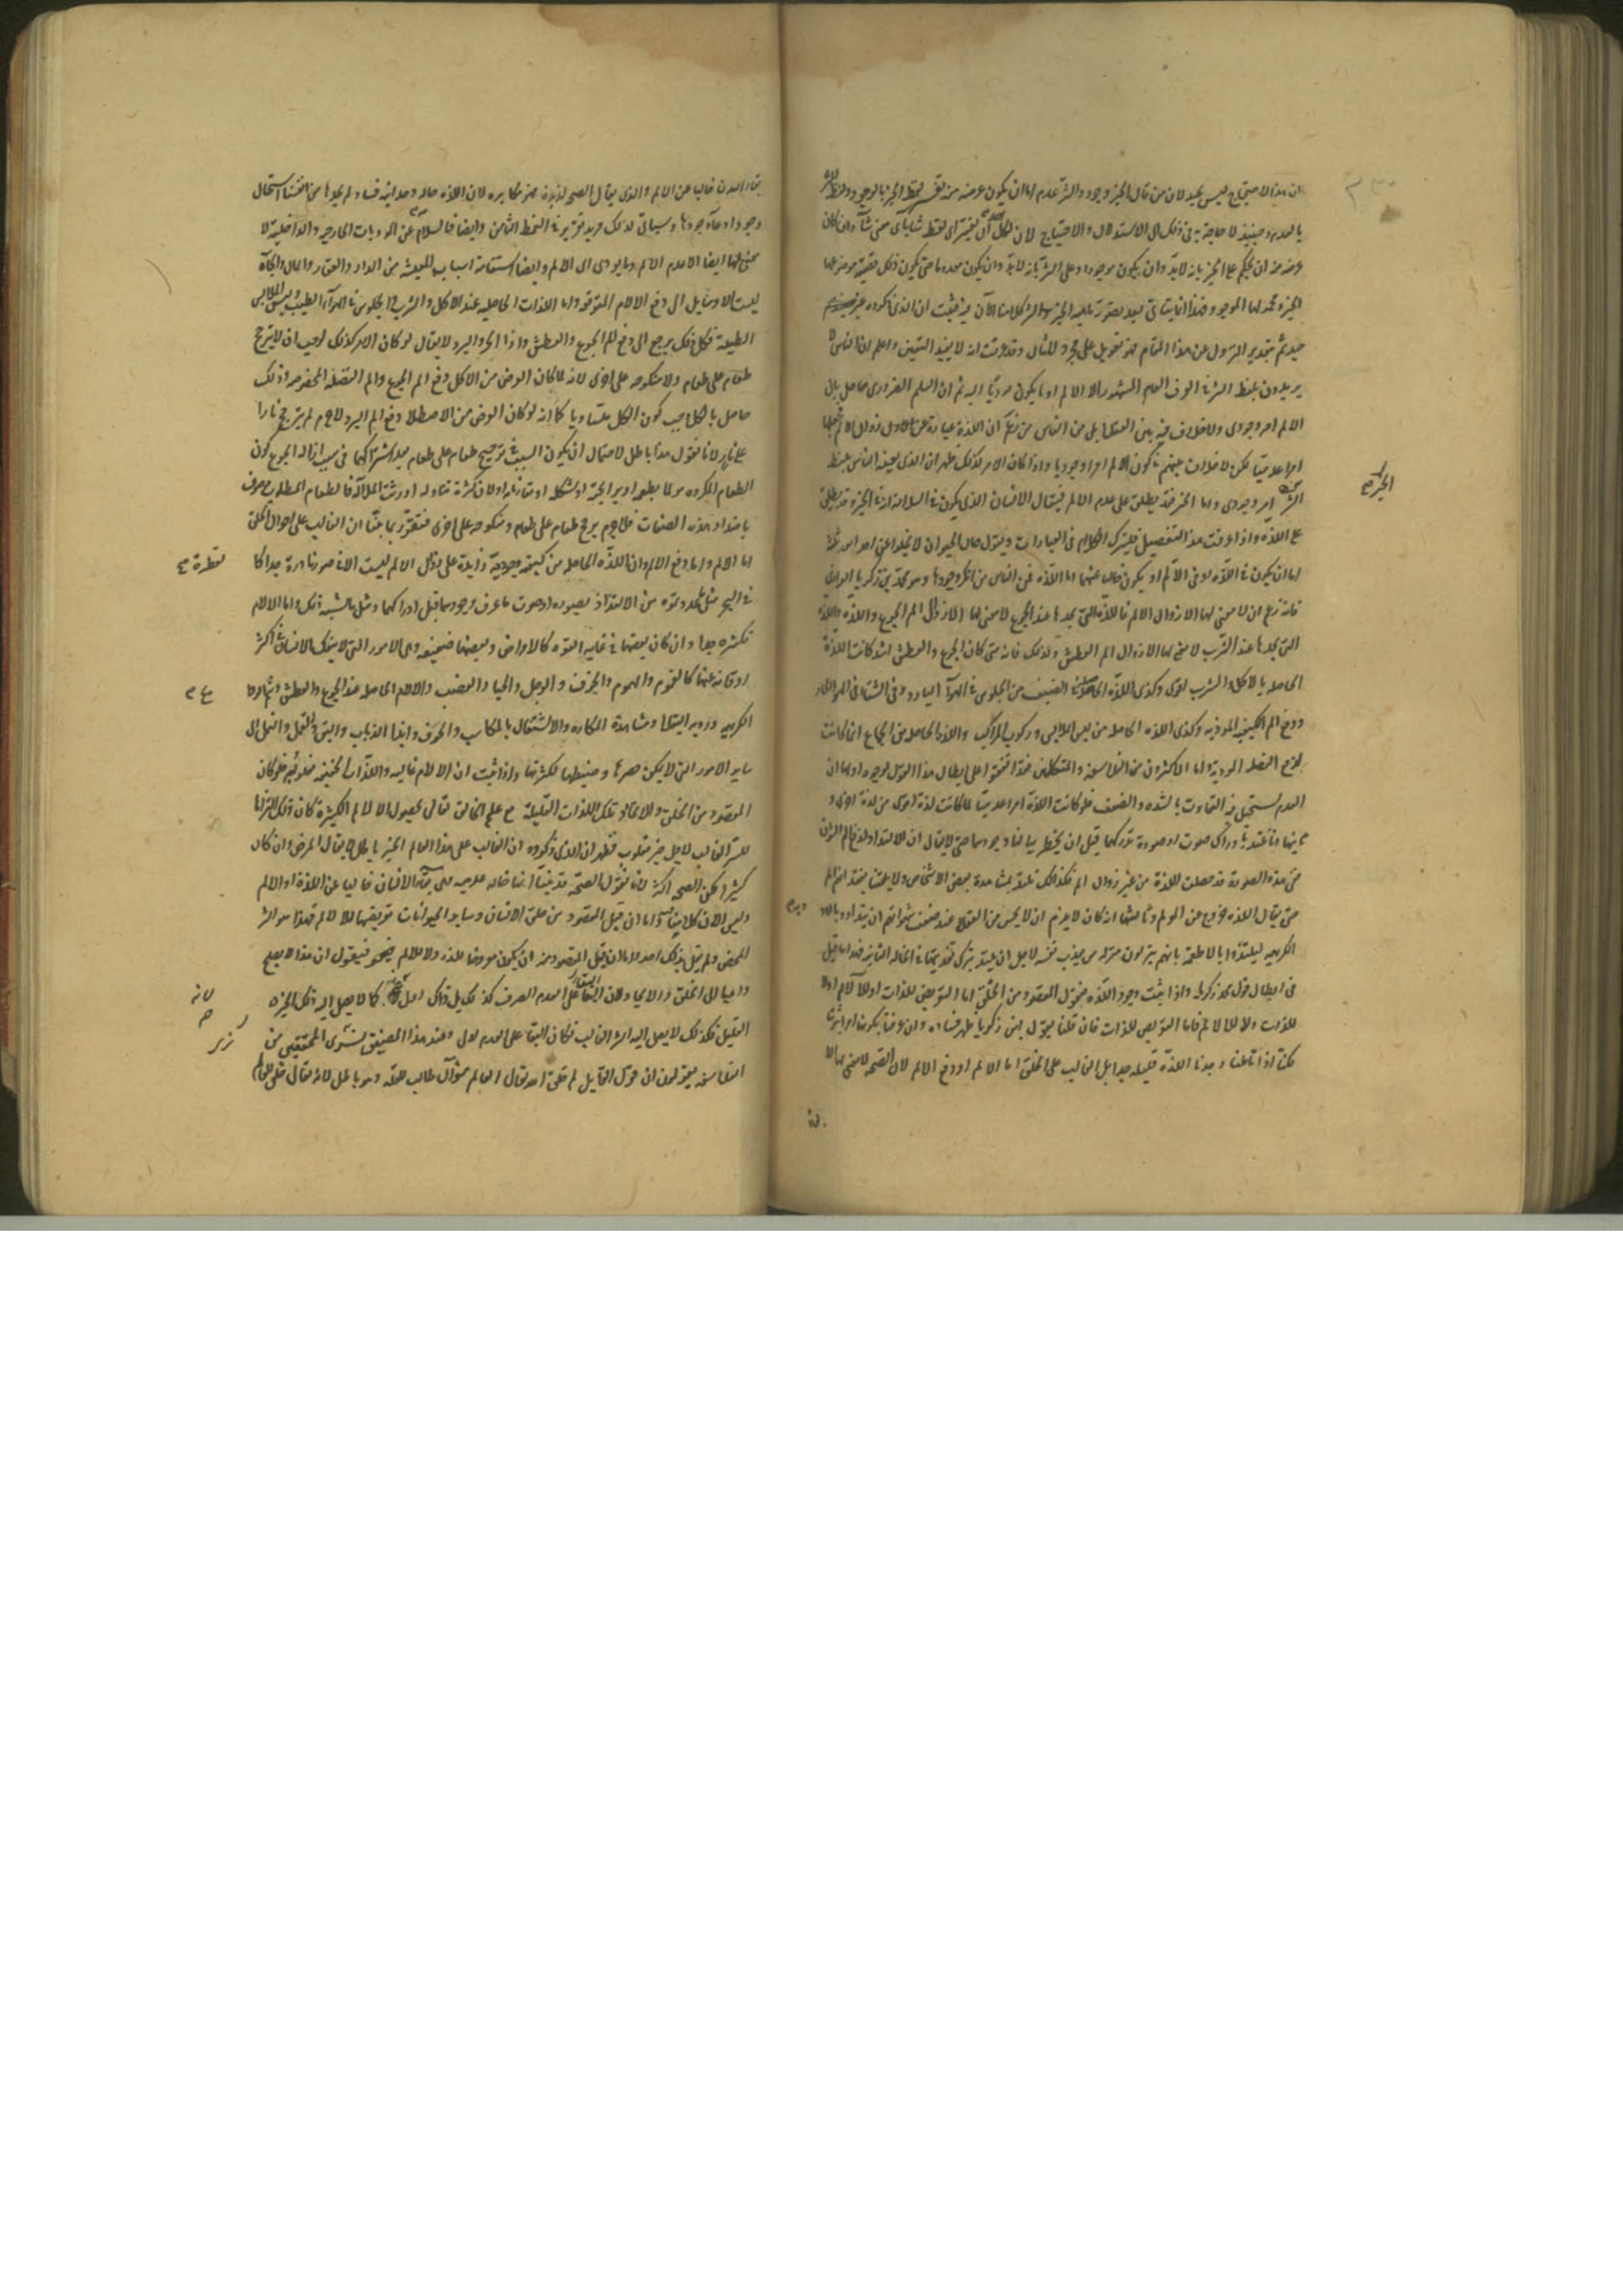 ان هذا الاحتجاج ليس بجيد لان من قال الخير وجود والشر عدم اما ان يكون غرضه منه تفسير لفظ الخير بالوجود ولفظ الشر
بالعدم وحينئذ لا حاجة به في ذلك الى الاستدلال والاحتجاج لان لكل احد ان يفسر اى لفظ شاء باى معنى شاء وان كان
غرضه منه ان يحكم على الخير بانه لا بد وان يكون موجودا وعلى الشر بانه لا بد وان يكون معدوما حتى يكون ذلك قضية موضوعها
الخير ومحمولها الموجود فهذا انما يتاتى بعد تصور ماهية الخير والشر كلامنا الآن فيه فثبت ان الذى ذكروه غير
جيد ثم بتقدير النزول عن هذا المقام فهو تعويل على مجرد المثال وقد عرفت انه لا يفيد اليقين واعلم ان الناس
يريدون بلفظ الشر في العرف العام المشهور الا الالم او ما يكون مؤديا اليه ثم ان العلم الضرورى حاصل بان
الالم امر وجودى ولا خلاف فيه بين العقلاء بل من الناس من زعم ان اللذة عبارة عن زوال الالم
امرا عدميا لكن لا خلاف بينهم في كون الالم امرا وجوديا واذا كان الامر كذلك ظهر ان الذى يعنيه الناس بلفظ
الشر امر وجودى واما الخير فقد يطلق على عدم الالم فيقال الانسان الذى يكون في السلامة انه في الخير وقد يطلق
على اللذة واذا عرفت هذا التفصيل فليترك الكلام في العبارات ونقول حال الحيوان لا يخلو عن احد امور ثلثة
اما ان يكون في اللذة او في الالم او يكون خاليا عنهما اما اللذة فمن الناس من انكر وجودها وهو محمد بن زكريا الرازى
فانه زعم ان لا معنى لها الا زوال الالم فاللذة التى نجدها عند الجوع لا معنى لها الا زوال الم الجوع واللذة
التى نجدها عند الشرب لا معنى لها الا زوال الم العطش ولذلك فانه متى كان الجوع والعطش اشد كانت اللذة
الحاصلة بالاكل والشرب اقوى وكذى اللذة الحاصلة في الصيف من الجلوس في الهواء البارد وفى الشتاء في الهواء الحار
ودفع الم الكيفية الموذية وكذى اللذة الحاصلة من لبس الملابس وركوب المراكب واللذة الحاصلة من الجماع انما كانت
لدفع الفضلة الموذية واما الاكثرون من الفلاسفة والمتكلمين فقد اتفقوا على ابطال هذا القول لوجوه اولها ان
العدم يستحيل فيه التفاوت بالشدة والضعف فلو كانت اللذة امرا عدميا لما كانت لذة اقوى من لذة اخرى و
ثانيها انا نلتذ بادراك صوت او صورة ندركهما قبل ان يخطر ببالنا وجودهما حتى لا يقال ان الالتذاذ لدفع الم الشوق
ففى هذه الصورة قد حصلت اللذة من غير زوال الم فكذلك نلتذ بمشاهدة بعض الاشخاص ولا يمكننا
حتى يقال اللذة خروج عن المولم وثالثها انه كان لا يلزم ان لا يحسن من العقلاء عند ضعف شهواتهم ان يتداووا بالادوية
الكريهة ليلتذوا بالاطعمة بانهم ينزلون منزلة من يعذب نفسه لاجل ان يلتذ بترك تعذيبها في الحالة الثانية فهذا ما قيل
في ابطال قول محمد بن زكريا واذا ثبت وجود اللذة فنقول المقصود من الخلق اما التعويض للذات او للآلام او لا
للذات ولا للالام فاما التعويض للذات فان قلنا بقول ابن زكريا ظهر فساده وان اعترفنا بكونها امرا ثبوتيا
لكنا اذا تاملنا وجدنا اللذة قليلة جدا بل الغالب على الخلق اما الالم او دفع الالم لان الصحة لا معنى لها الا
الخير
بقاء البدن خاليا عن الالم والذى يقال الصحة لذيذة فهو مكابرة لان اللذة حالة وجدانية فما لم نجدها من انفسنا استحال
وجود ادعاء وجودها وسياتى لذلك مزيد تقرير في النمط الثامن وايضا فالسلامة عن الموذيات الخارجية والداخلية لا
معنى لها ايضا الا عدم الالم وما يودى الى الالم وايضا استقامة اسباب المعيشة من الدار والعقار والمال والجاه
ليست الا وسايل الى دفع الالام المتوقعة واما اللذات الحاصلة عند الاكل والشرب والجلوس في الهواء الطيب ولبس الملابس
الطيبة فكل ذلك يرجع الى دفع الم الجوع والعطش واذا الحر والبرد لا يقال لو كان الامر كذلك لوجب ان لا يترجح
طعام على طعام ولا منكوحة على اخرى لانه لما كان الغرض من الاكل دفع الم الجوع والم الفضلة المخصوصة وذلك
حاصل بالكل وجب كون الكل متساويا كما انه لو كان الغرض من الاصطلاء دفع الم البرد لا جرم لم يترجح نارا
على نار لانا نقول هذا باطل لاحتمال ان يكون السبب في ترجيح طعام على طعام بعد اشتراكهما في سبب ازالة الجوع كون
الطعام المكروه مولما بطعمه او ريح الجنة او شكله او مقارناته او لان كثرة تناوله اورثت الملالة فالطعام المطلوب موصوف
باضداد هذه الصفات فلا جرم يرجح طعام على طعام ومنكوحة على اخرى فتقرر بما بينا ان الغالب على احوال الخلق
اما الالم واما دفع الالم وان اللذة الحاصلة من كيفية وجودية زايدة على زوال الالم ليست الا في صور نادرة جدا كا
في البحر مثل ما عددتموه من الالتذاذ بصورة او صوت ما عرف وجودهما قبل ادراكهما ومثل ما يشبه ذلك واما الالام
فكثيرة جدا وان كان بعضها في غاية القوة كالامراض وبعضها ضعيفة وهى الامور التى لا ينفك الانسان في اكثر
اوقاته عنها كالغموم والهموم والخوف والوجل والحيا والغضب والالام الحاصلة عند الجوع والعطش وشم الروايح
الكريهة وروية الثقلا ومشاهدة المكاره والاشتغال بالمكاسب والحرف وايذا الذباب والبق والقمل والنمل الى
ساير الامور التى لا يمكن حصرها وضبطها لكثرتها واذا ثبت ان الالام غالبة واللذات الحقيقية مغلوبة فلو كان
المقصود من الخلق والايجاد تلك اللذات القليلة مع علم الخالق تعالى بحصول الالام الكثيرة كان ذلك التزاما
للشر الغالب لاجل خير مغلوب فظهر ان الذى ذكروه ان الغالب على هذا العالم الخير باطل لا يقال المرض وان كان
كثيرا لكن الصحة اكثر لانا نقول الصحة قد بينا انها حالة عدمية هى بقاء الانسان خاليا عن اللذة او الالم
وليس الان كلامنا فيه واما ان قيل المقصود من خلق الانسان وساير الحيوانات تعويضها للالام فهذا هو الشر
المحض ولم يقل بذلك احد واما ان قيل المقصود منه ان يكون معوضا للذة ولا للالم فنقول ان هذا لا يصلح
داعيا الى الخلق والايجاد لان البقاء على العدم الصرف كذلك كما لا يصل اليه ذلك الخير
القليل فكذلك لا يصل اليه الشر الغالب فكان البقاء على العدم اولى وعند هذا المضيق ترى المحققين من
الفلاسفة يقولون ان قول القايل لم خلق الله تعالى العالم سؤال طالب للعلة وهو باطل لانه تعالى خلق العالم
قطرة
لانه